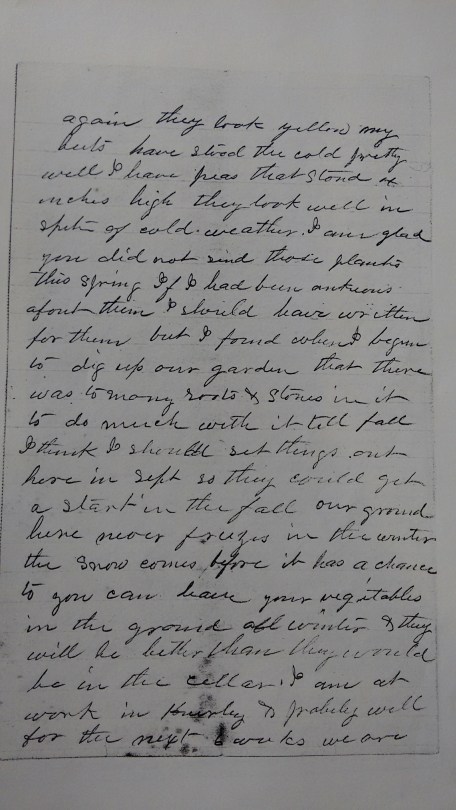 again they look yellow my
beets have stood the cold pretty
well I have peas that stand 4
inches high they look well in
spite of cold weather. I am glad
you did not send those plants
this spring If I had been antious
afout them I should have written
for them but I found when I begun
to dig up our garden that there
was to many roots & stones in it
to do much with it till fall
I think I should set things out
here in Sept so they could get
a start in the fall our ground
here never freezes in the winter
the snow comes before it has a chance
to you can leave your vegitables
in the ground all winter & they
will be better than they would
be in the cellar. I am at
work in & probely will
for the next 6 weeks we are